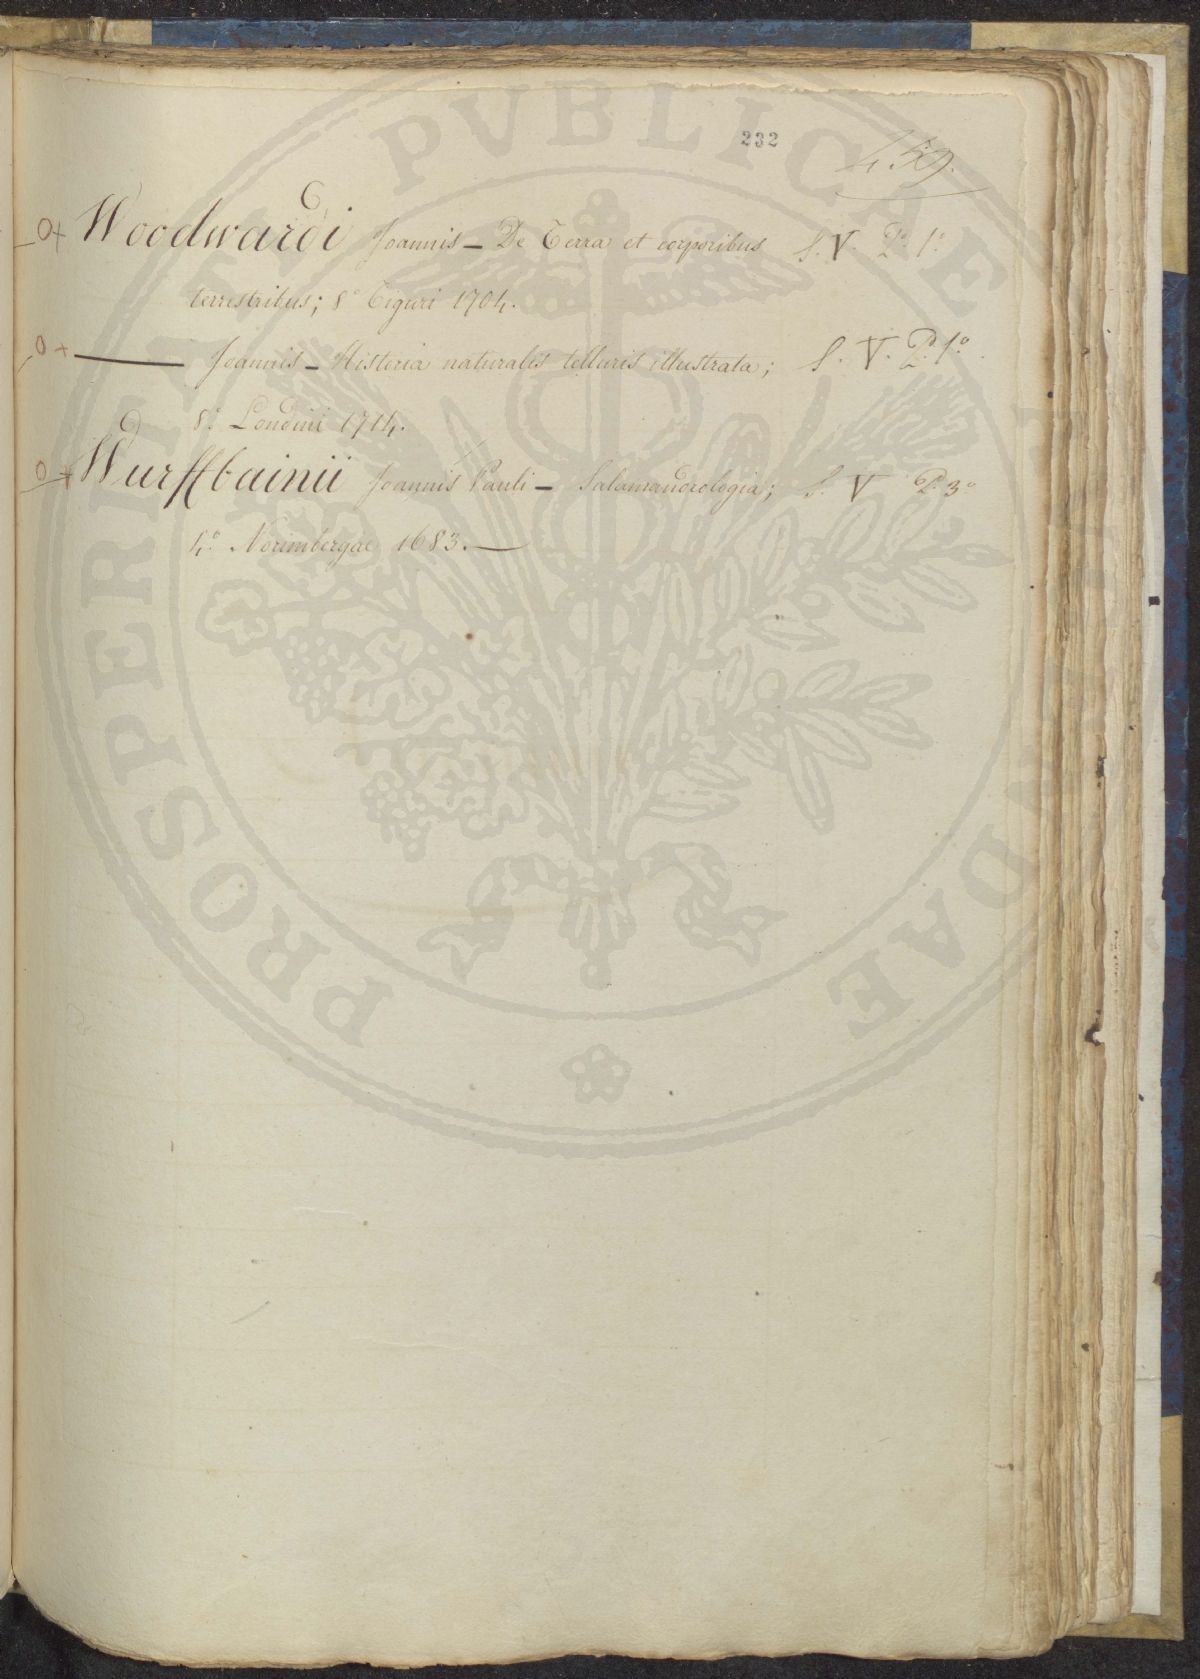 232
459.
Woodwardi Joannis — De Terra et corporibus S. V. P. 1.º
terrestribus; 8.º Tiguri 1704.
——— Joannis — Historia naturalis telluris illustrata; S. V. P. 1.º
8.º Londini 1714.
Wurffbainii Joannis Pauli — Salamandrologia; S. V P. 3.º
4.º Norimbergae 1683. —
PROSPERITATI PVBLICAE AVGENDAE